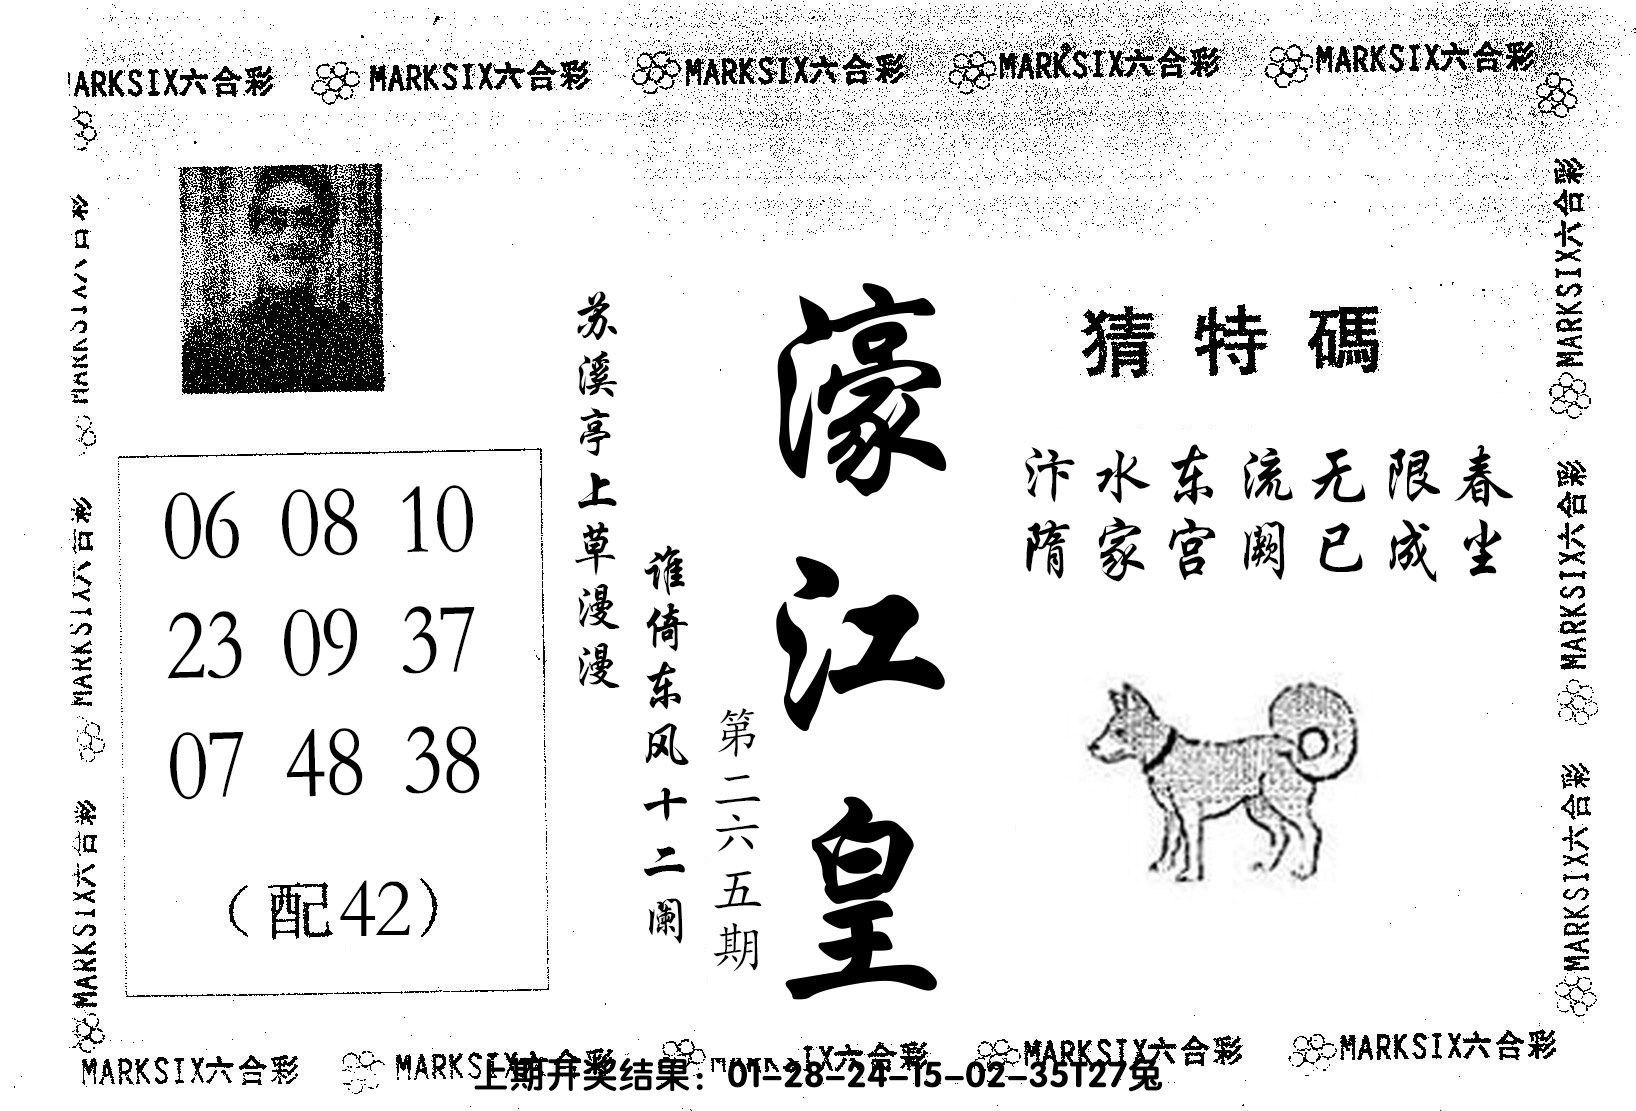 MARKSIX六合彩 MARKSIX六合彩 MARKSIX六合彩 MARKSIX六合彩 MARKSIX六合彩
MARKSIX六合彩
MARKSIX六合彩
MARKSIX六合彩
06 08 10
23 09 37
07 48 38
（配42）
苏溪亭上草漫漫
谁倚东风十二阑
第二六五期
濠江皇
猜特碼
汴水东流无限春
隋家宫阙已成尘
MARKSIX六合彩
MARKSIX六合彩
MARKSIX六合彩
MARKSIX六合彩 MARKSIX六合彩 MARKSIX六合彩 MARKSIX六合彩 MARKSIX六合彩
上期开奖结果：01-28-24-15-02-35T27兔